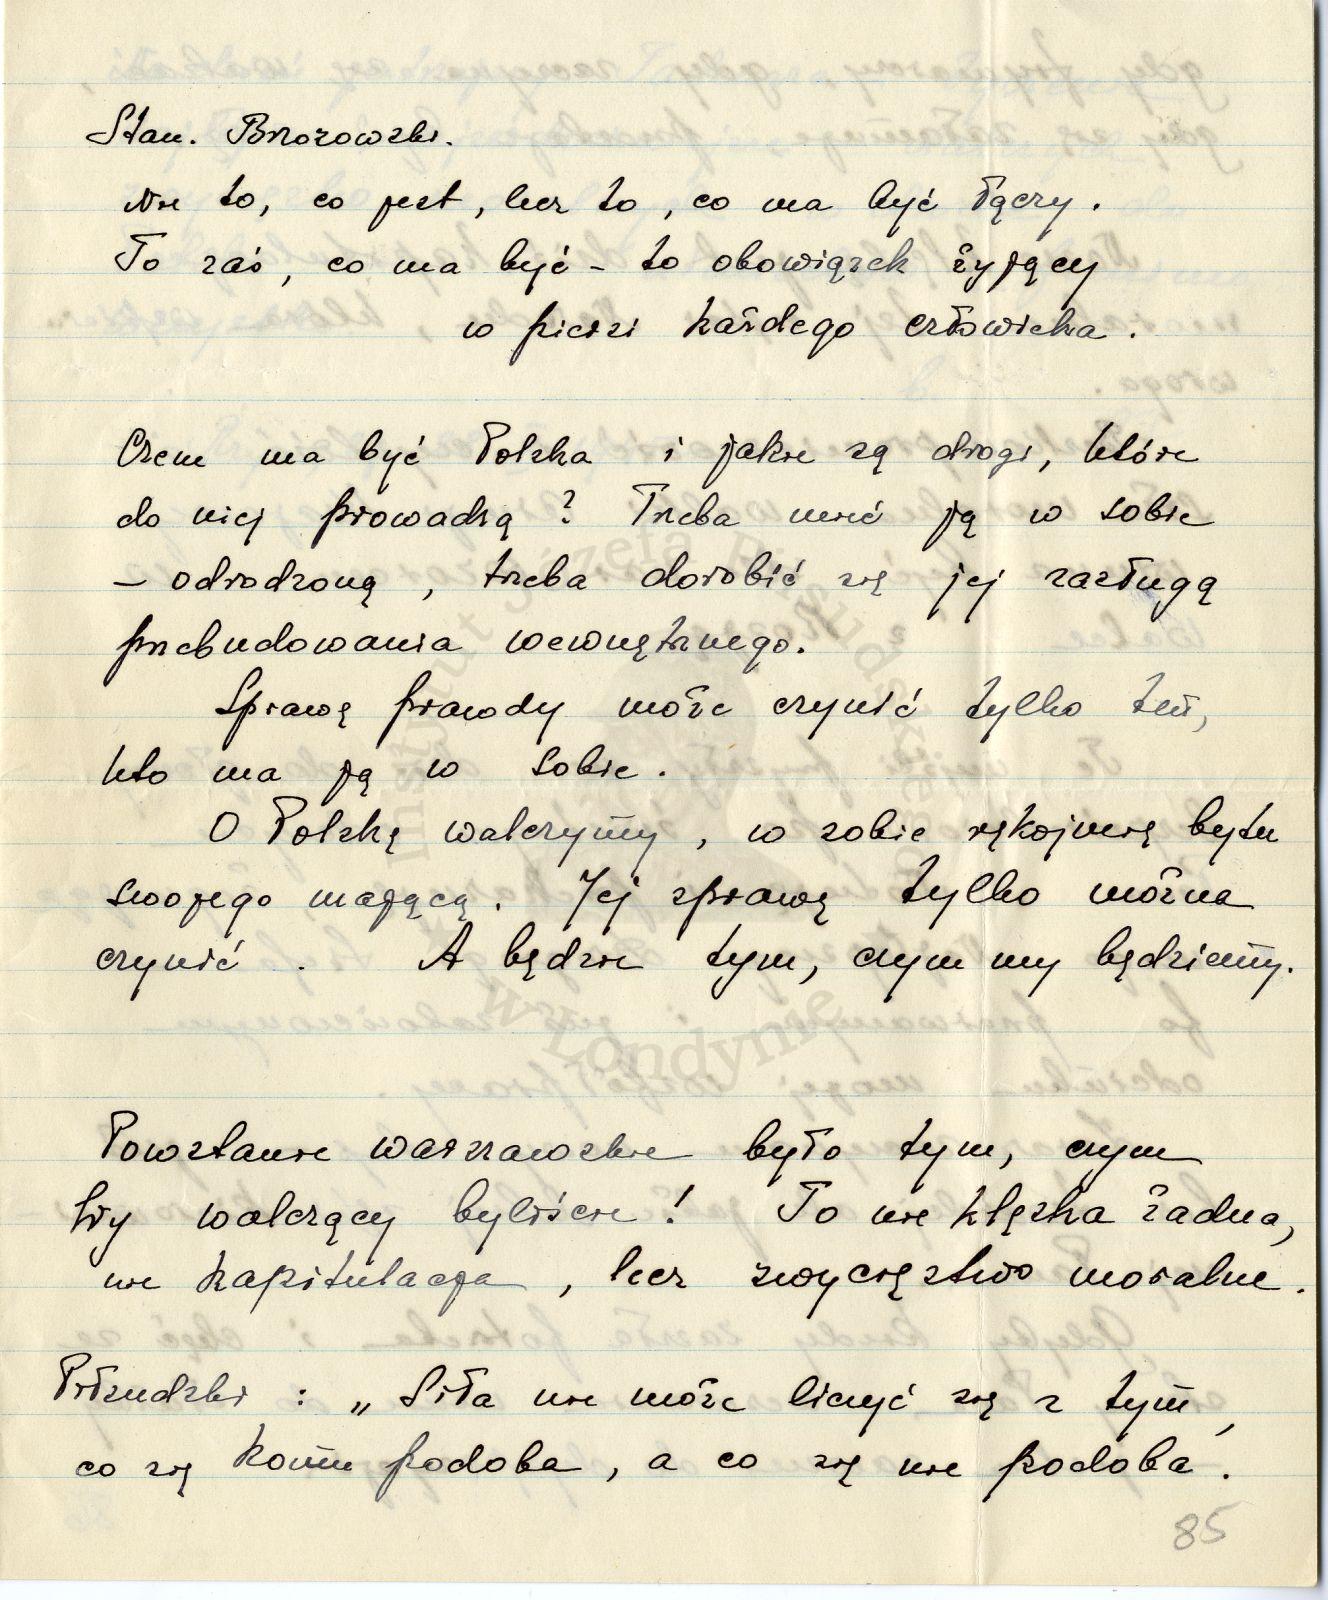 Stan. Brzozowski.
Nie to, co jest, lecz to, co ma być łączy.
To zaś, co ma być – to obowiązek żyjący
w piersi każdego człowieka.
Czem ma być Polska i jakie są drogi, które
do niej prowadzą? Trzeba mieć ją w sobie
– odrodzoną, trzeba dorobić się jej zasługą
przebudowania wewnętrznego.
Sprawę prawdy może czynić tylko ten,
kto ma ją w sobie.
O Polskę walczymy, w sobie rękojmię bytu
swojego mającą. Jej sprawę tylko można
czynić. A będzie tym, czym my będziemy.
Powstanie warszawskie było tym, czym
Wy walczący byliście! To nie klęska żadna,
nie kapitulacja, lecz zwycięztwo moralne.
Piłsudski: „Siła nie może liczyć się z tym,
co się komu podoba, a co się nie podoba.
85
Instytut Józefa Piłsudskiego
w Londynie